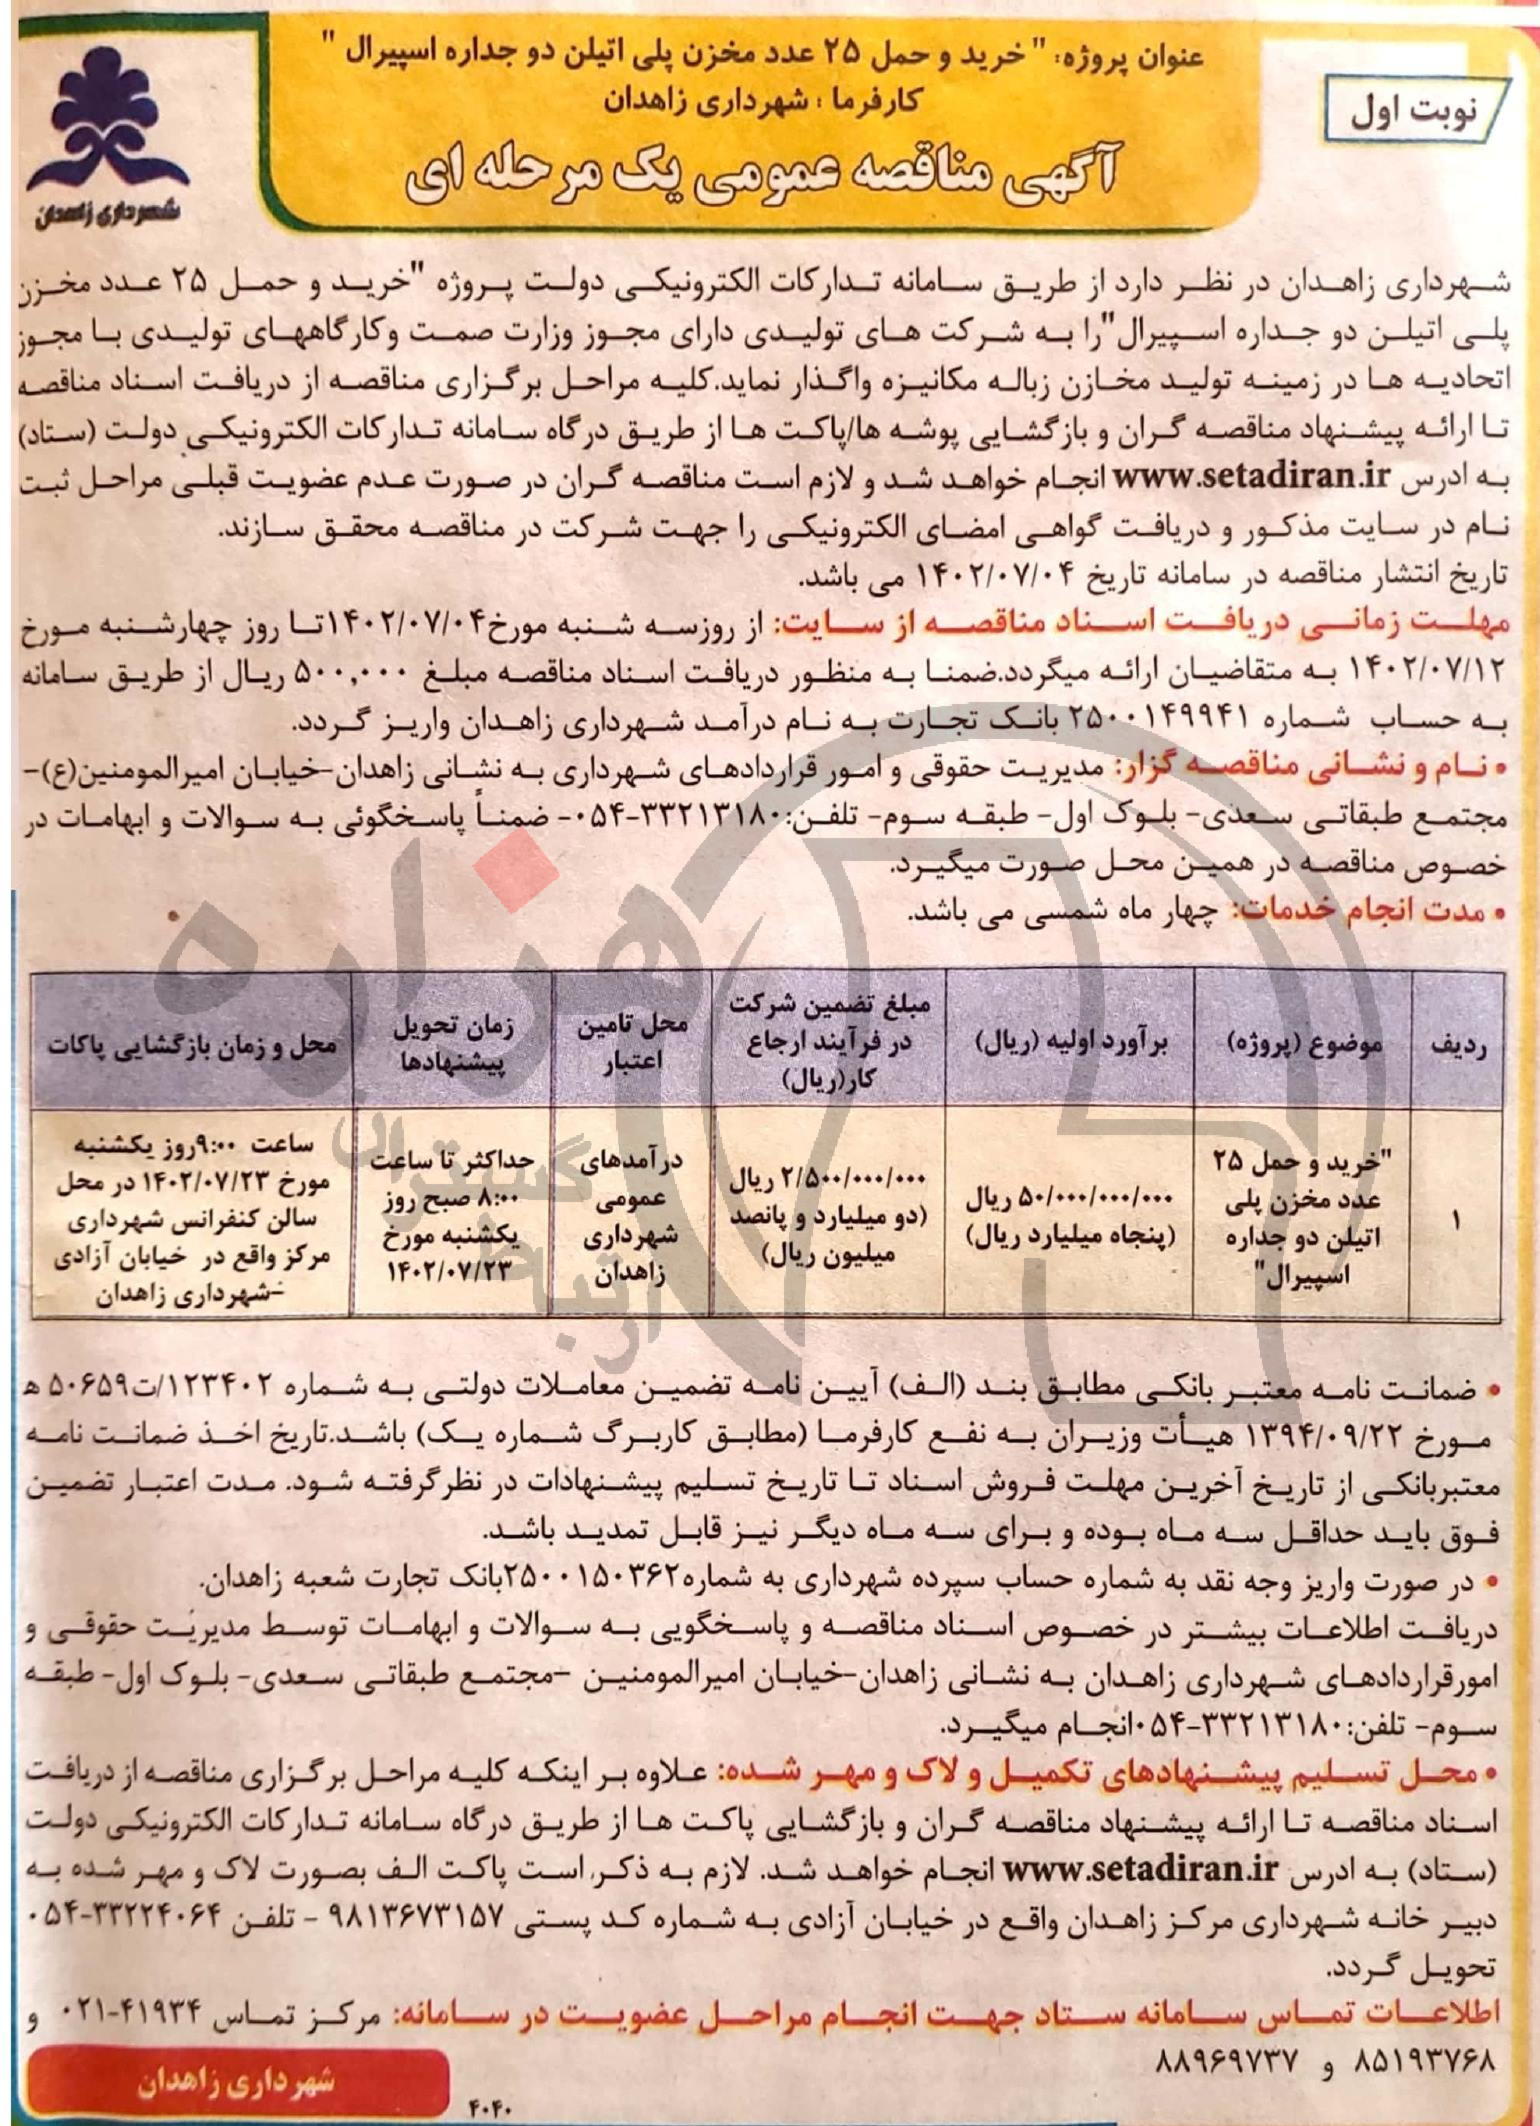 عنوان پروژه: " خرید و حمل ۲۵ عدد مخزن پلی اتیلن دو جداره اسپیرال "
کارفرما : شهرداری زاهدان
نوبت اول
آگهی مناقصه عمومی یک مرحله ای
شهرداری زاهدان
شهرداری زاهدان در نظر دارد از طریق سامانه تدارکات الکترونیکی دولت پروژه "خرید و حمل ۲۵ عدد مخزن
پلی اتیلن دو جداره اسپیرال"را به شرکت های تولیدی دارای مجوز وزارت صمت وکارگاههای تولیدی با مجوز
اتحادیه ها در زمینه تولید مخازن زباله مکانیزه واگذار نماید.کلیه مراحل برگزاری مناقصه از دریافت اسناد مناقصه
تا ارائه پیشنهاد مناقصه گران و بازگشایی پوشه ها/پاکت ها از طریق درگاه سامانه تدارکات الکترونیکی دولت (ستاد)
به ادرس www.setadiran.ir انجام خواهد شد و لازم است مناقصه گران در صورت عدم عضویت قبلی مراحل ثبت
نام در سایت مذکور و دریافت گواهی امضای الکترونیکی را جهت شرکت در مناقصه محقق سازند.
تاریخ انتشار مناقصه در سامانه تاریخ ۱۴۰۲/۰۷/۰۴ می باشد.
مهلت زمانی دریافت اسناد مناقصه از سایت: از روزسه شنبه مورخ۱۴۰۲/۰۷/۰۴تا روز چهارشنبه مورخ
۱۴۰۲/۰۷/۱۲ به متقاضیان ارائه میگردد.ضمنا به منظور دریافت اسناد مناقصه مبلغ ۵۰۰,۰۰۰ ریال از طریق سامانه
به حساب شماره ۲۵۰۰۱۴۹۹۴۱ بانک تجارت به نام درآمد شهرداری زاهدان واریز گردد.
• نام و نشانی مناقصه گزار: مدیریت حقوقی و امور قراردادهای شهرداری به نشانی زاهدان-خیابان امیرالمومنین(ع)-
مجتمع طبقاتی سعدی- بلوک اول- طبقه سوم- تلفن:۳۳۲۱۳۱۸۰-۰۵۴- ضمناً پاسخگوئی به سوالات و ابهامات در
خصوص مناقصه در همین محل صورت میگیرد.
• مدت انجام خدمات: چهار ماه شمسی می باشد.
ردیف
موضوع (پروژه)
برآورد اولیه (ریال)
مبلغ تضمین شرکت
در فرآیند ارجاع
کار(ریال)
محل تامین
اعتبار
زمان تحویل
پیشنهادها
محل و زمان بازگشایی پاکات
۱
"خرید و حمل ۲۵
عدد مخزن پلی
اتیلن دو جداره
اسپیرال"
۵۰/۰۰۰/۰۰۰/۰۰۰ ریال
(پنجاه میلیارد ریال)
۲/۵۰۰/۰۰۰/۰۰۰ ریال
(دو میلیارد و پانصد
میلیون ریال)
درآمدهای
عمومی
شهرداری
زاهدان
حداکثر تا ساعت
۸:۰۰ صبح روز
یکشنبه مورخ
۱۴۰۲/۰۷/۲۳
ساعت ۹:۰۰روز یکشنبه
مورخ ۱۴۰۲/۰۷/۲۳ در محل
سالن کنفرانس شهرداری
مرکز واقع در خیابان آزادی
-شهرداری زاهدان
هزاره
ارتباط گستران
• ضمانت نامه معتبر بانکی مطابق بند (الف) آیین نامه تضمین معاملات دولتی به شماره ۱۲۳۴۰۲/ت۵۰۶۵۹ ه
مورخ ۱۳۹۴/۰۹/۲۲ هیأت وزیران به نفع کارفرما (مطابق کاربرگ شماره یک) باشد.تاریخ اخذ ضمانت نامه
معتبربانکی از تاریخ آخرین مهلت فروش اسناد تا تاریخ تسلیم پیشنهادات در نظرگرفته شود. مدت اعتبار تضمین
فوق باید حداقل سه ماه بوده و برای سه ماه دیگر نیز قابل تمدید باشد.
• در صورت واریز وجه نقد به شماره حساب سپرده شهرداری به شماره۲۵۰۰۱۵۰۳۶۲بانک تجارت شعبه زاهدان.
دریافت اطلاعات بیشتر در خصوص اسناد مناقصه و پاسخگویی به سوالات و ابهامات توسط مدیریت حقوقی و
امورقراردادهای شهرداری زاهدان به نشانی زاهدان-خیابان امیرالمومنین -مجتمع طبقاتی سعدی- بلوک اول- طبقه
سوم- تلفن:۳۳۲۱۳۱۸۰-۰۵۴انجام میگیرد.
• محل تسلیم پیشنهادهای تکمیل و لاک و مهر شده: علاوه بر اینکه کلیه مراحل برگزاری مناقصه از دریافت
اسناد مناقصه تا ارائه پیشنهاد مناقصه گران و بازگشایی پاکت ها از طریق درگاه سامانه تدارکات الکترونیکی دولت
(ستاد) به ادرس www.setadiran.ir انجام خواهد شد. لازم به ذکر است پاکت الف بصورت لاک و مهر شده به
دبیر خانه شهرداری مرکز زاهدان واقع در خیابان آزادی به شماره کد پستی ۹۸۱۳۶۷۳۱۵۷ - تلفن ۳۳۲۲۴۰۶۴-۰۵۴
تحویل گردد.
اطلاعات تماس سامانه ستاد جهت انجام مراحل عضویت در سامانه: مرکز تماس ۴۱۹۳۴-۰۲۱ و
۸۵۱۹۳۷۶۸ و ۸۸۹۶۹۷۳۷
شهرداری زاهدان
۴۰۴۰